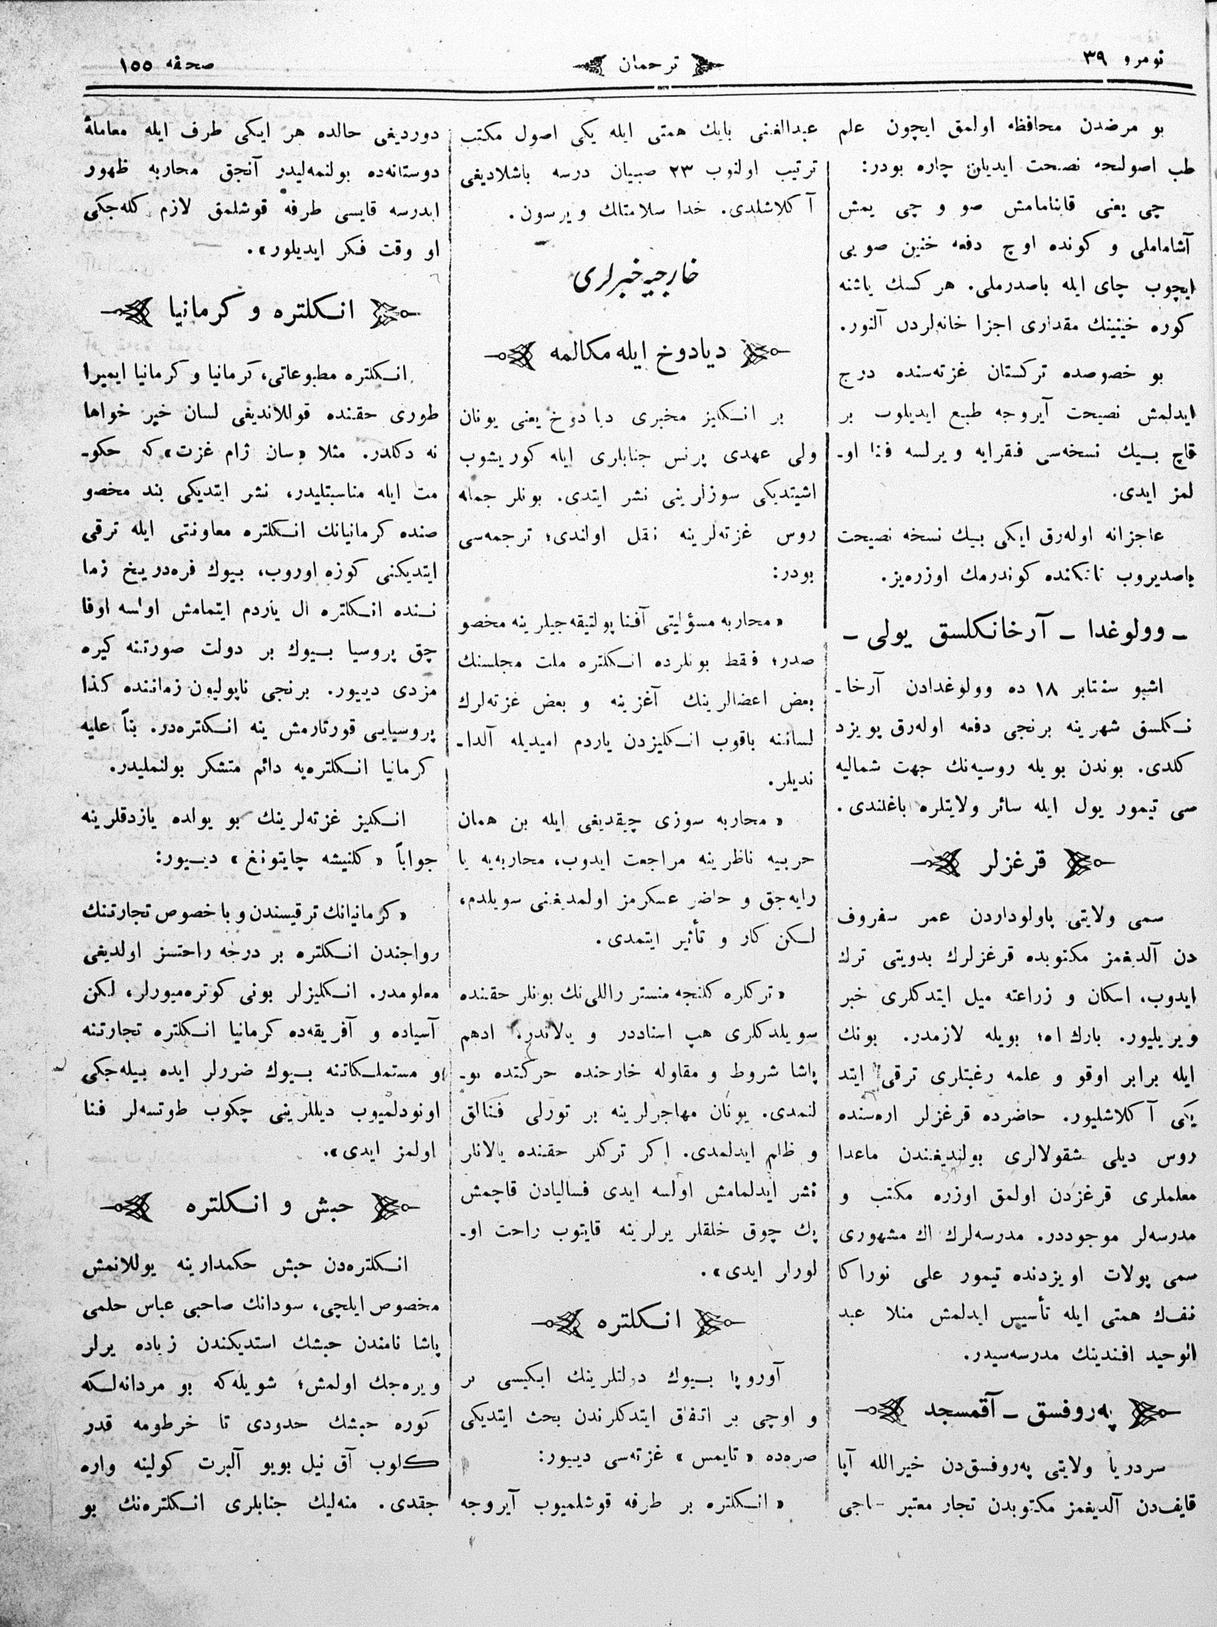 نومرو ٣٩
ترجمان
صحفه ١٥٥
بو مرضدن محافظه اولمق ایچون علم
طب اصولجه نصیحت ایدیلن چاره بودر:
چی یعنی قاینامامش صو و چی یمش
آشاماملی و كونده اوچ دفعه خنین صویی
ایچوب چای ایله باصدرملی. هر كسك یاشنه
كوره خینینك مقداری اجزا خانه‌لردن آلنور.
بو خصوصده تركستان غزته‌سنده درج
ایدلمش نصیحت آیروجه طبع ایدیلوب بر
قاچ بـیـك نسخه‌سی فقرایه ویرلسه فنا او-
لمز ایدی.
عاجزانه اوله‌رق ایكی بیك نسخه نصیحت
باصدیروب تاشكنده كوندرمك اوزره‌یز.
ـ وولوغدا ـ آرخانكلسق یولی ـ
اشبو سنتابر ١٨ ده وولوغدادن آرخا-
نـكلسق شهرینه برنجی دفعه اوله‌رق پویزد
كلدی. بوندن بویله روسیه‌نك جهت شمالیه
سی تیمور یول ایله سائر ولایتلره باغلندی.
قرغزلر
سمی ولایتی پاولوداردن عمر سفروف
دن آلدیغمز مكتوبده قرغزلرك بدویتی ترك
ایدوب، اسكان و زراعته میل ایتدكلری خبر
ویریلیور. بارك اه؛ بویله لازمدر. بونك
ایله برابر اوقو و علمه رغبتلری ترقی ایتد
یكی آكلاشلیور. حاضرده قرغزلر اره‌سنده
روس دیلی شقولالری بولندیغندن ماعدا
معلملری قرغزدن اولمق اوزره مكتب و
مدرسه‌لر موجوددر. مدرسه‌لرك اك مشهوری
سمی پولات اویزدنده تیمور علی نوراكا
نفك همتی ایله تأسیس ایدلمش منلا عبد
الوحید افندینك مدرسه‌سیدر.
په‌روفسق ـ آقمسجد
سردریا ولایتی په‌روفسق‌دن خیرالله آپا
قایف‌دن آلدیغمز مكتوبدن تجار معتبر حاجی
عبدالغنی بایك همتی ایله یكی اصول مكتب
ترتیب اولنوب ٢٣ صبیان درسه باشلادیغی
آكلاشلدی. خدا سلامتلك ویرسون.
خارجیه خبرلری
دیادوخ ایله مكالمه
بر انـكلیز مخبری دیادوخ یعنی یونان
ولی عهدی پرنس جنابلری ایله كوریشوب
اشیتدیكی سوزلرینی نشر ایتدی. بونلر جمله
روس غزته‌لرینه نقل اولندی؛ ترجمه‌سی
بودر:
« محاربه مسؤلیتی آفنا پولتیقه‌جیلرینه مخصو
صدر؛ فقط بونلرده انـكلتره ملت مجلسنك
بعض اعضالرینك آغزینه و بعض غزته‌لرك
لساننه باقوب انـكلیزدن یاردم امیدیله آلدا-
ندیلر.
« محاربه سوزی چیقدیغی ایله بن همان
حربیه ناظرینه مراجعت ایدوب، محاربه‌یه یا
رایه‌جق و حاضر عسكرمز اولمدیغنی سویلدم،
لـكن كار و تأثیر ایتمدی.
« تركلره كلنجه منستر راللی‌نك بونلر حقنده
سویلدكلری هپ اسناددر و یالاندر. ادهم
پاشا شروط و مقاوله خارحنده حركتده بو-
لنمدی. یونان مهاجرلرینه بر تورلی فنالق
و ظلم ایدلمدی. اكر تركلر حقنده یالانلر
نشر ایدلمامش اولسه ایدی فسالیادن قاچمش
پك چوق خلقلر یرلرینه قایتوب راحت او-
لورلر ایدی».
انـكلتره
آوروپا بـیـوك دولتلرینك ایكیسی بر
و اوچی بر اتفاق ایتدكلرندن بحث ایتدیكی
صره‌ده « تایمس » غزته‌سی دییور:
« انـكلتره بر طرفه قوشلمیوب آیروجه
دوردیغی حالده هر ایكی طرف ایله معاملهٔ
دوستانه‌ده بولنمه‌لیدر آنجق محاربه ظهور
ایدرسه قایسی طرفه قوشلمق لازم كله‌جكی
او وقت فكر ایدیلور».
انـكلتره و كرمانیا
انـكلتره مطبوعاتی، كرمانیا و كرمانیا ایمپرا
طوری حقنده قوللاندیغی لسان خیر خواها
نه دكلدر. مثلا «سان ژام غزت»‌كه حكو-
مت ایله مناسبتلیدر، نشر ایتدیكی بند مخصو
صنده كرمانیانك انـكلتره معاونتی ایله ترقی
ایتدیكنی كوزه اوروب، بیوك فره‌دریخ زما
نـنده انـكلتره ال یاردم ایتمامش اولسه اوقا
چق پروسیا بـیـوك بر دولت صورتنه كیره
مزدی دییور. برنجی ناپولیون زماننده كذا
پروسیایی قورتارمش ینه انـكلتره‌در. بناً علیه
كرمانیا انـكلتره‌یه دائم متشكر بولنملیدر.
انـكلیز غزته‌لرینك بو یولده یازدقلرینه
جواباً « كلنیشه چایتونغ » دیـیور:
« كرمانیانك ترقیسندن و با خصوص تجارتنك
رواجندن انـكلتره بر درجه راحتسز اولدیغی
معلومدر. انـكلیزلر بونی كوتره‌میورلر، لـكن
آسیاده و آفریقه‌ده كرمانیا انـكلتره تجارتنه
و مستملـكاتنه بـیـوك ضررلر ایده بیله‌جكی
اونودلمیوب دیللرینی چكوب طوتسه‌لر فنا
اولمز ایدی».
حبش و انـكلتره
انـكلتره‌دن حبش حكمدارینه یوللانمش
مخصوص ایلچی، سودانك صاحبی عباس حلمی
پاشا نامندن حبشك استدیكندن زیاده یرلر
ویره‌جك اولمش؛ شویله‌كه بو مردانه‌لـكه
كوره حبشك حدودی تا خرطومه قدر
كلوب آق نیل بویو آلبرت كولینه واره
جقدی. منه‌لیك جنابلری انـكلتره‌نك بو